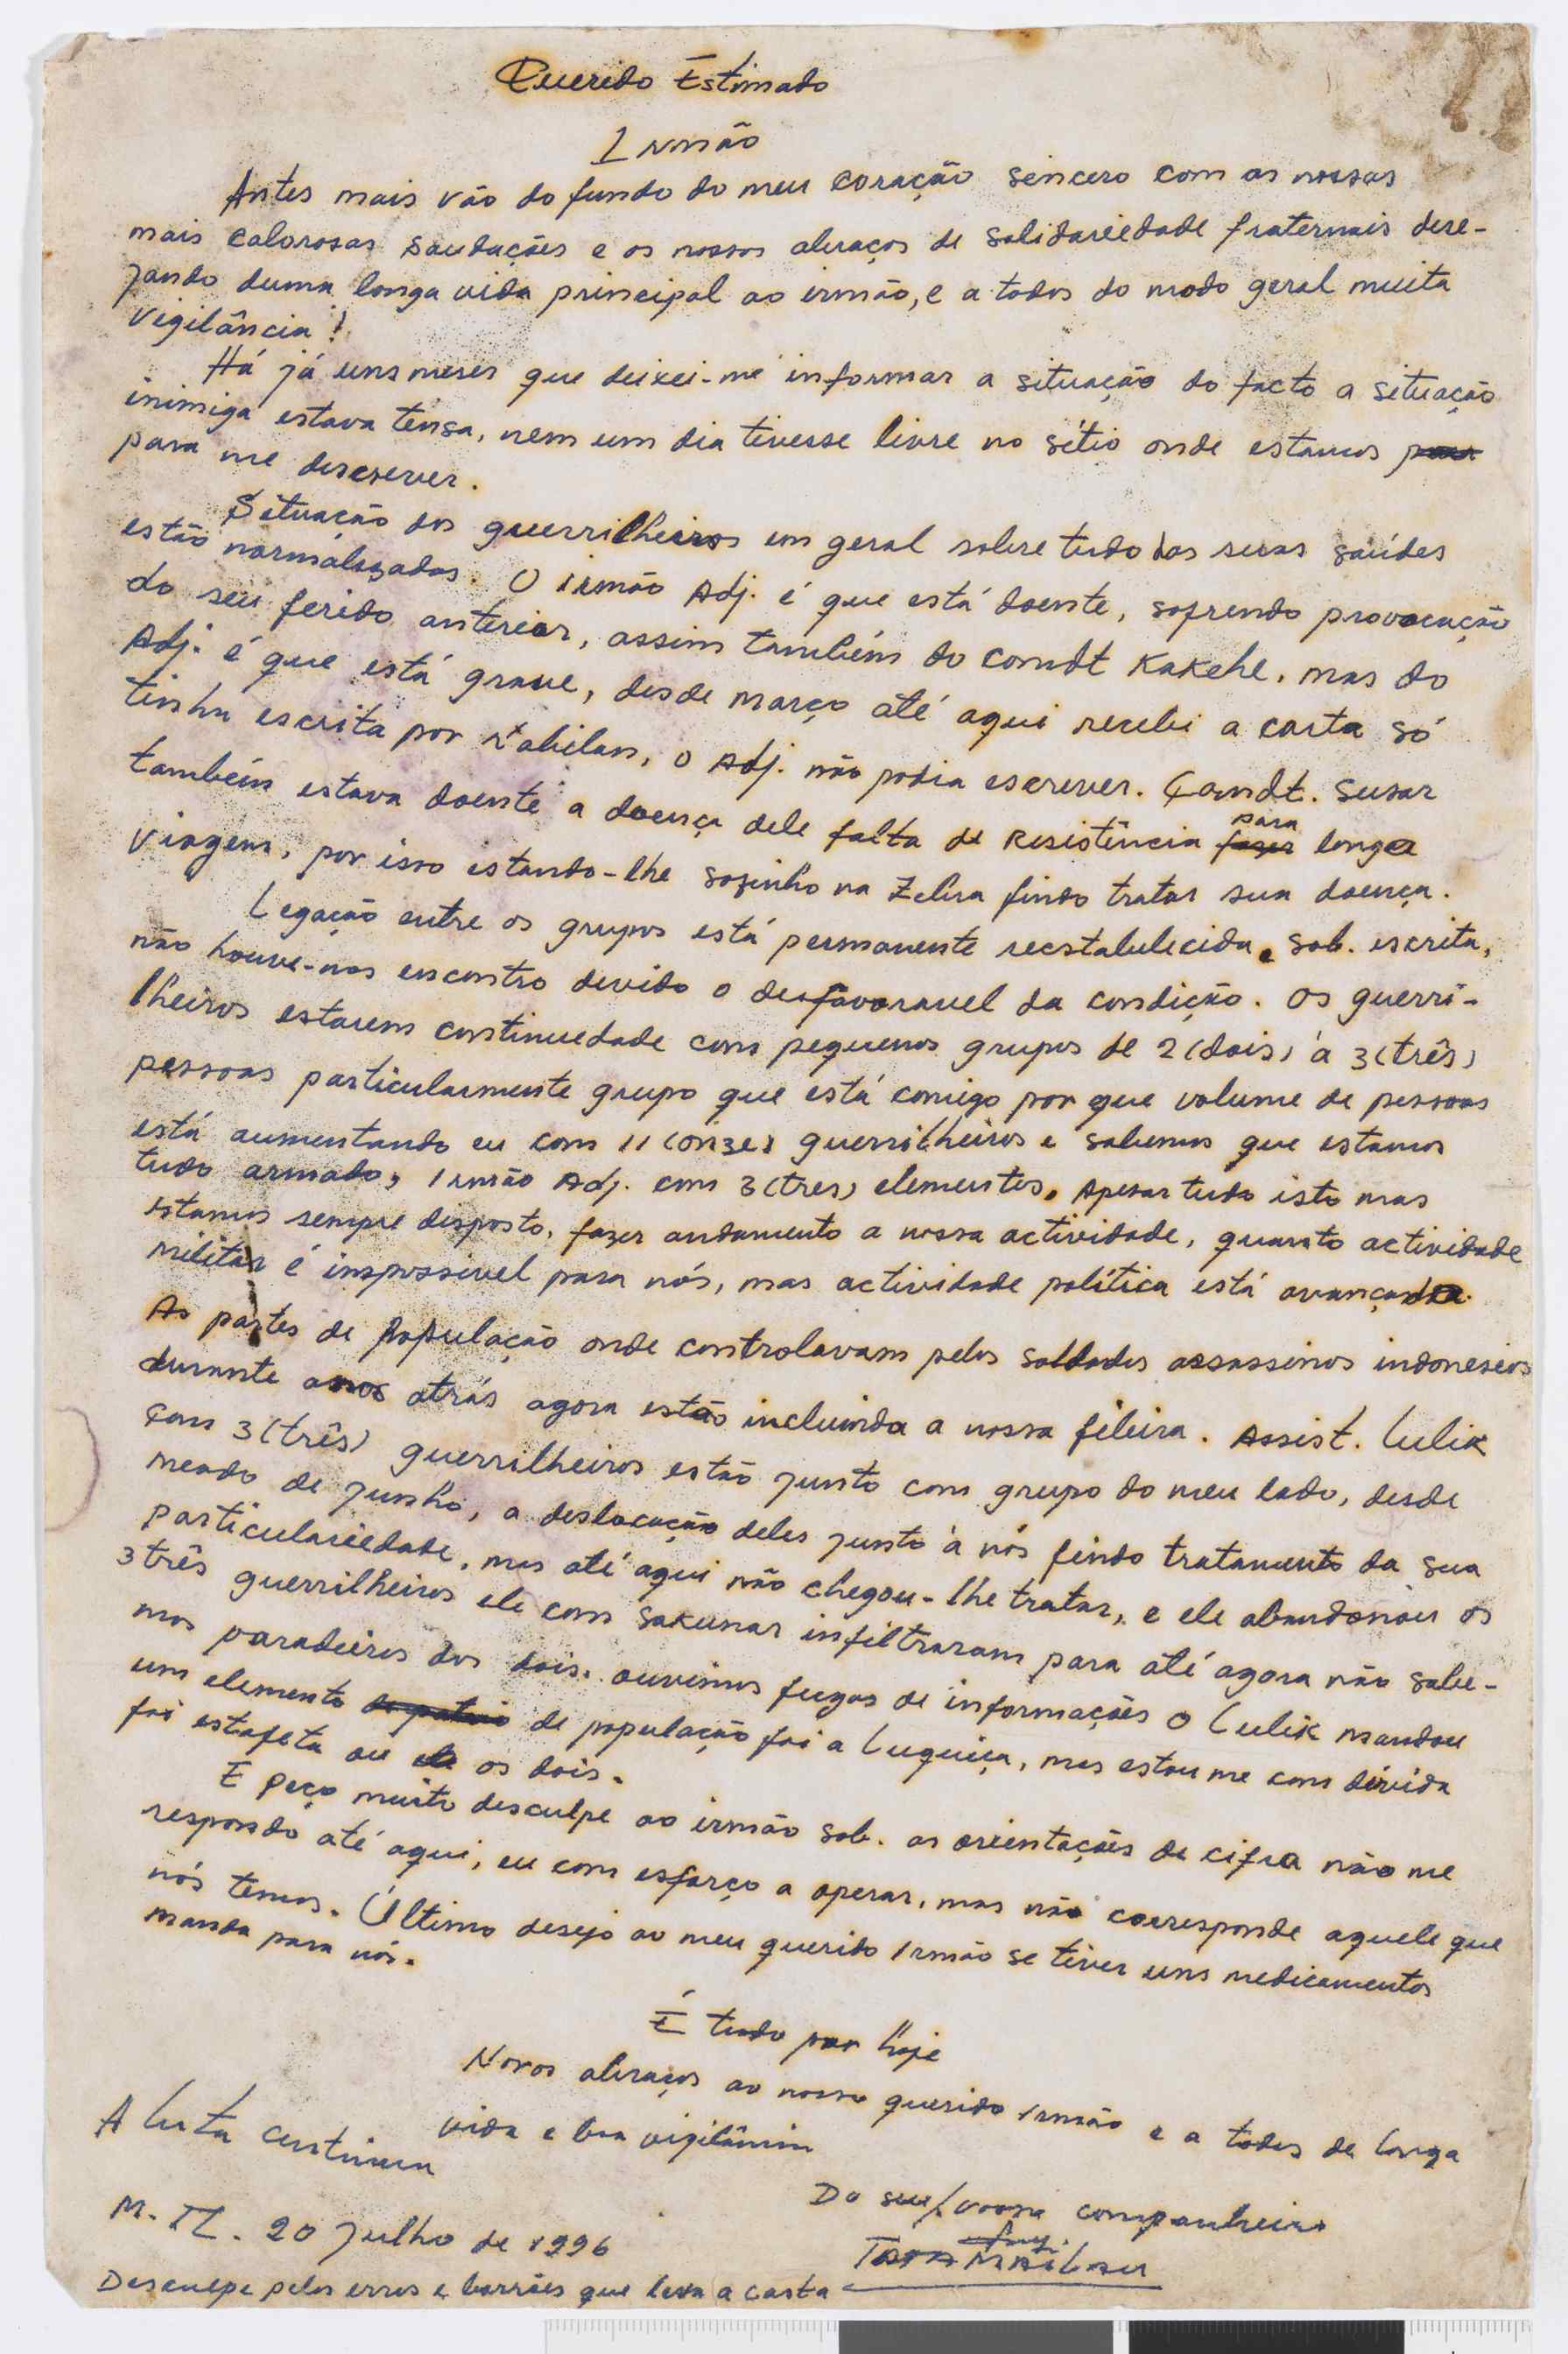 Querido Estimado
Irmão
Antes mais vão do fundo do meu coração sincero com as nossas
mais calorosas saudações e os nossos abraços de solidariedade fraternais dese-
jando duma longa vida principal ao irmão, e a todos do modo geral muita
vigilância!
Há já uns meses que deixei-me informar a situação do facto a situação
inimiga estava tensa, nem um dia tivesse livre no sítio onde estamos
para me descrever.
Situação dos guerrilheiros em geral sobre tudo das suas saúdes
estão normalizadas. O irmão Adj. é que está doente, sofrendo provocação
do seu ferido anterior, assim também do comdt Kakehe, mas do
Adj. é que está grave, desde março até aqui recebi a carta só
tinha escrita por Nabilan, o Adj. não podia escrever. Comdt. Susar
também estava doente a doença dele falta de resistência para longa
viagem, por isso estando-lhe sozinho na Zebra findo tratar sua doença.
Legação entre os grupos está permanente reestabulecida, sob. escrita,
não houve-nos encontro devido o desfavoravel da condição. Os guerri-
lheiros estarem continuedade com pequenos grupos de 2 (dois) à 3 (três)
pessoas particularmente grupo que está comigo por que volume de pessoas
está aumentando eu com 11 (onze) guerrilheiros e sabemos que estamos
tudo armado, Irmão Adj. com 3 (tres) elementos. Apesar tudo isto mas
estamos sempre disposto, fazer andamento a nossa actividade, quanto actividade
militar é impossivel para nós, mas actividade política está avançando.
As partes de população onde controlavam pelos soldados assassinos indonesios
durante anos atrás agora estão incluinda a nossa fileira. Assist. Lulik
com 3 (três) guerrilheiros estão junto com grupo do meu lado, desde
meado de junho, a deslocação deles junto à nós findo tratamento da sua
particulariedade, mas até aqui não chegou-lhe tratar, e ele abandonou os
3 três guerrilheiros ele com Sakunar infiltraram para até agora não sabe-
mos paradeiros dos dois. ouvimos fugas de informações o Lulik mandou
um elemento de população foi a Luquiça, mas estou me com dúvida
foi estafeta ou os dois.
E peço muito desculpe ao irmão sob. as orientações de cifra não me
respondo até aqui, eu com esforço a operar, mas não corresponde aquele que
nós temos. Último desejo ao meu querido Irmão se tiver uns medicamentos
manda para nós.
É tudo por hoje
Novos abraços ao nosso querido irmão e a todos de longa
vida e boa vigilância
A luta continua
Do seu/vosso companheiro
M. TL. 20 julho de 1996
Tara Mailau
Desculpe pelos erros e borrões que leva a carta